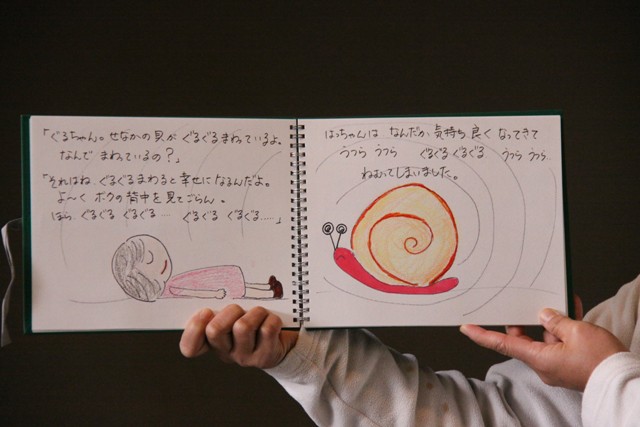 「ぐるちゃん。せなかの貝が ぐるぐるまわっているよ。
なんで まわっているの？」
「それはね ぐるぐるまわると幸せになるんだよ。
よ〜く ボクの背中を見てごらん。
ほら ぐるぐる ぐるぐる… ぐるぐる ぐるぐる……」
はっちゃんは なんだか 気持ち良く なってきて
うつら うつら ぐるぐるぐるぐる うつら うつら
ねむってしまいました。